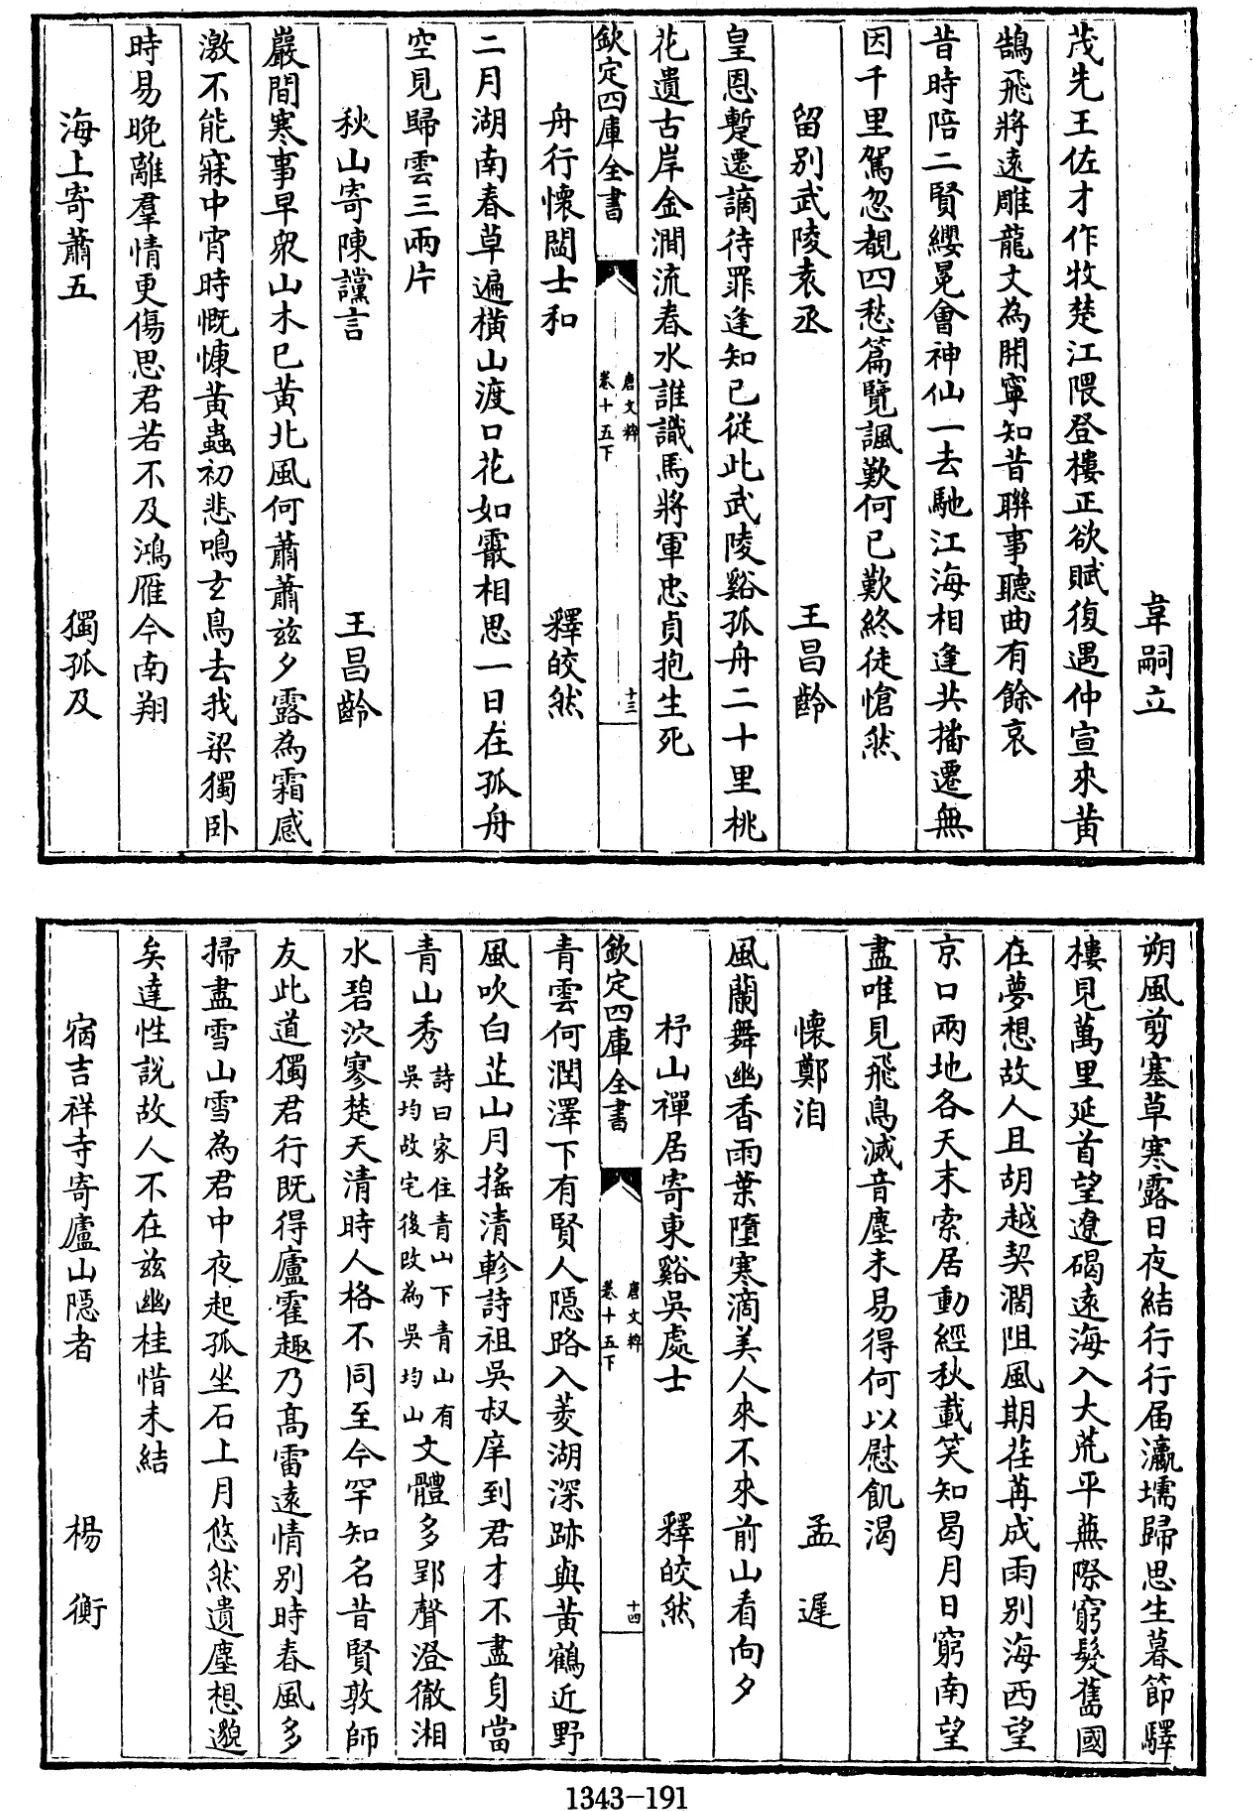 韋嗣立
茂先王佐才作牧楚江隈登樓正欲賦復遇仲宣來黄
鵠飛將遠雕龍文為開寧知昔聯事聽曲有餘哀
昔時陪二賢纓冕會神仙一去馳江海相逢共播遷無
因千里駕忽覩四愁篇覽諷歎何已歎終徒愴然
留别武陵袁丞 王昌齡
皇恩蹔遷謫待罪逢知已從此武陵谿孤舟二十里桃
花遺古岸金澗流春水誰識馬將軍忠貞抱生死
欽定四庫全書 唐文粹 卷十五下 十三
舟行懷閻士和 釋皎然
二月湖南春草遍橫山渡口花如霰相思一日在孤舟
空見歸雲三兩片
秋山寄陳讜言 王昌齡
巖間寒事早衆山木已黄北風何蕭蕭兹夕露為霜感
激不能寐中宵時慨慷黄蟲初悲鳴玄鳥去我梁獨卧
時易晚離羣情更傷思君若不及鴻雁今南翔
海上寄蕭五 獨孤及
朔風剪塞草寒露日夜結行行届瀛壖歸思生暮節驛
樓見萬里延首望遼碣遠海入大荒平蕪際窮髮舊國
在夢想故人且胡越契濶阻風期荏苒成雨别海西望
京口兩地各天末索居動經秋載笑知曷月日窮南望
盡唯見飛鳥滅音塵未易得何以慰飢渴
懷鄭洎 孟遲
風蘭舞幽香雨葉墮寒滴美人來不來前山看向夕
杼山禪居寄東谿吳處士 釋皎然
欽定四庫全書 唐文粹 卷十五下 十四
青雲何潤澤下有賢人隱路入菱湖深跡與黄鶴近野
風吹白芷山月搖清軫詩祖吳叔庠到君才不盡身當
青山秀詩曰家住青山下青山有吳均故宅後改為吳均山文體多郢聲澄徹湘
水碧泬寥楚天清時人格不同至今罕知名昔賢敦師
友此道獨君行既得廬霍趣乃高雷遠情别時春風多
掃盡雪山雪為君中夜起孤坐石上月悠然遺塵想邈
矣達性説故人不在兹幽桂惜未結
宿吉祥寺寄廬山隱者 楊衡
1343-191